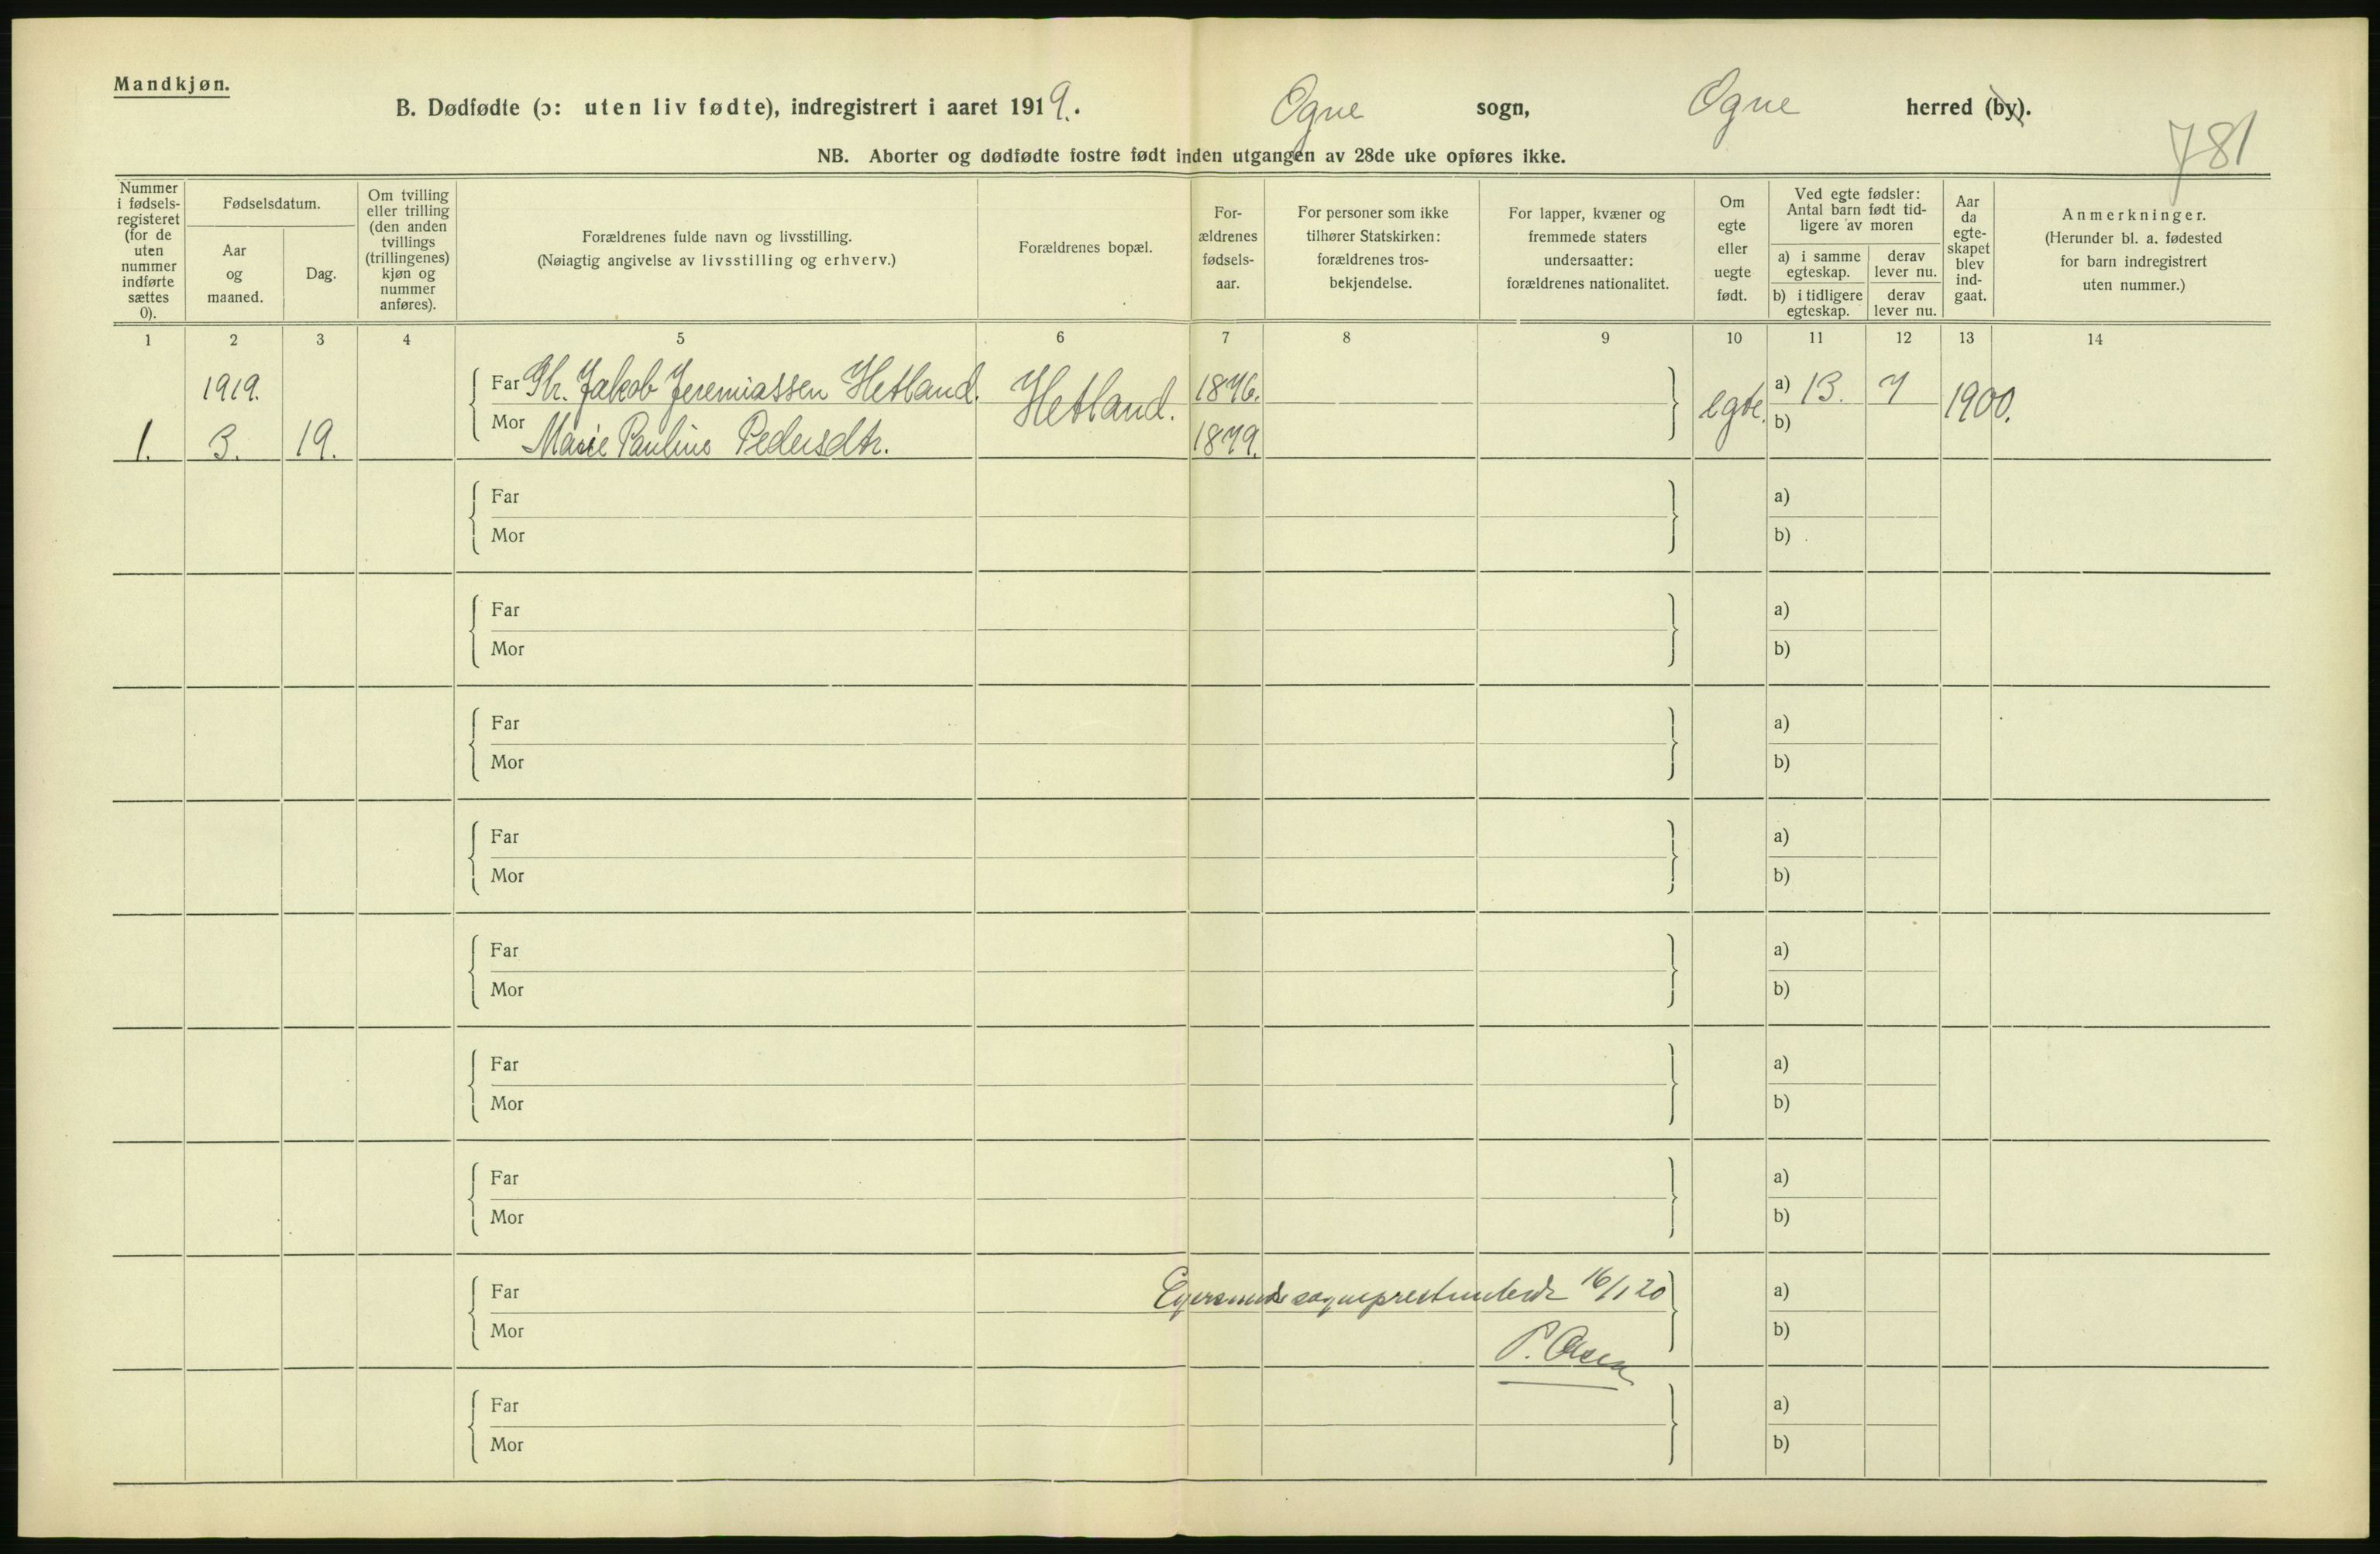 Mandkjøn.
B. Dødfødte (ɔ: uten liv fødte), indregistrert i aaret 1919. Ogne sogn, Ogne herred (by).
781
NB. Aborter og dødfødte fostre født inden utgangen av 28de uke opføres ikke.
Nummer i fødsels-registeret (for de uten nummer indførte sættes 0).
Fødselsdatum.
Aar og maaned.
Dag.
Om tvilling eller trilling (den anden tvillings (trillingenes) kjøn og nummer anføres).
Forældrenes fulde navn og livsstilling.
(Nøiagtig angivelse av livsstilling og erhverv.)
Forældrenes bopæl.
For-ældrenes fødsels-aar.
For personer som ikke tilhører Statskirken: forældrenes tros-bekjendelse.
For lapper, kvæner og fremmede staters undersaatter: forældrenes nationalitet.
Om egte eller uegte født.
Ved egte fødsler: Antal barn født tid-ligere av moren
a) i samme egteskap.
derav lever nu.
b) i tidligere egteskap.
derav lever nu.
Aar da egte-skapet blev ind-gaat.
Anmerkninger.
(Herunder bl. a. fødested for barn indregistrert uten nummer.)
1 2 3 4 5 6 7 8 9 10 11 12 13 14
1919. Far Jakob Jeremiassen Hetland. Hetland. 1876. egte. a) 13. 7 1900.
1. 3. 19. Mor Marie Pauline Pedersdtr. 1879. b)
Far a)
Mor b)
Far a)
Mor b)
Far a)
Mor b)
Far a)
Mor b)
Far a)
Mor b)
Far a)
Mor b)
Far a)
Mor b)
Far Egersunds sogneprestembede 16/1 20 a)
Mor b)
P. Olsen
Far a)
Mor b)